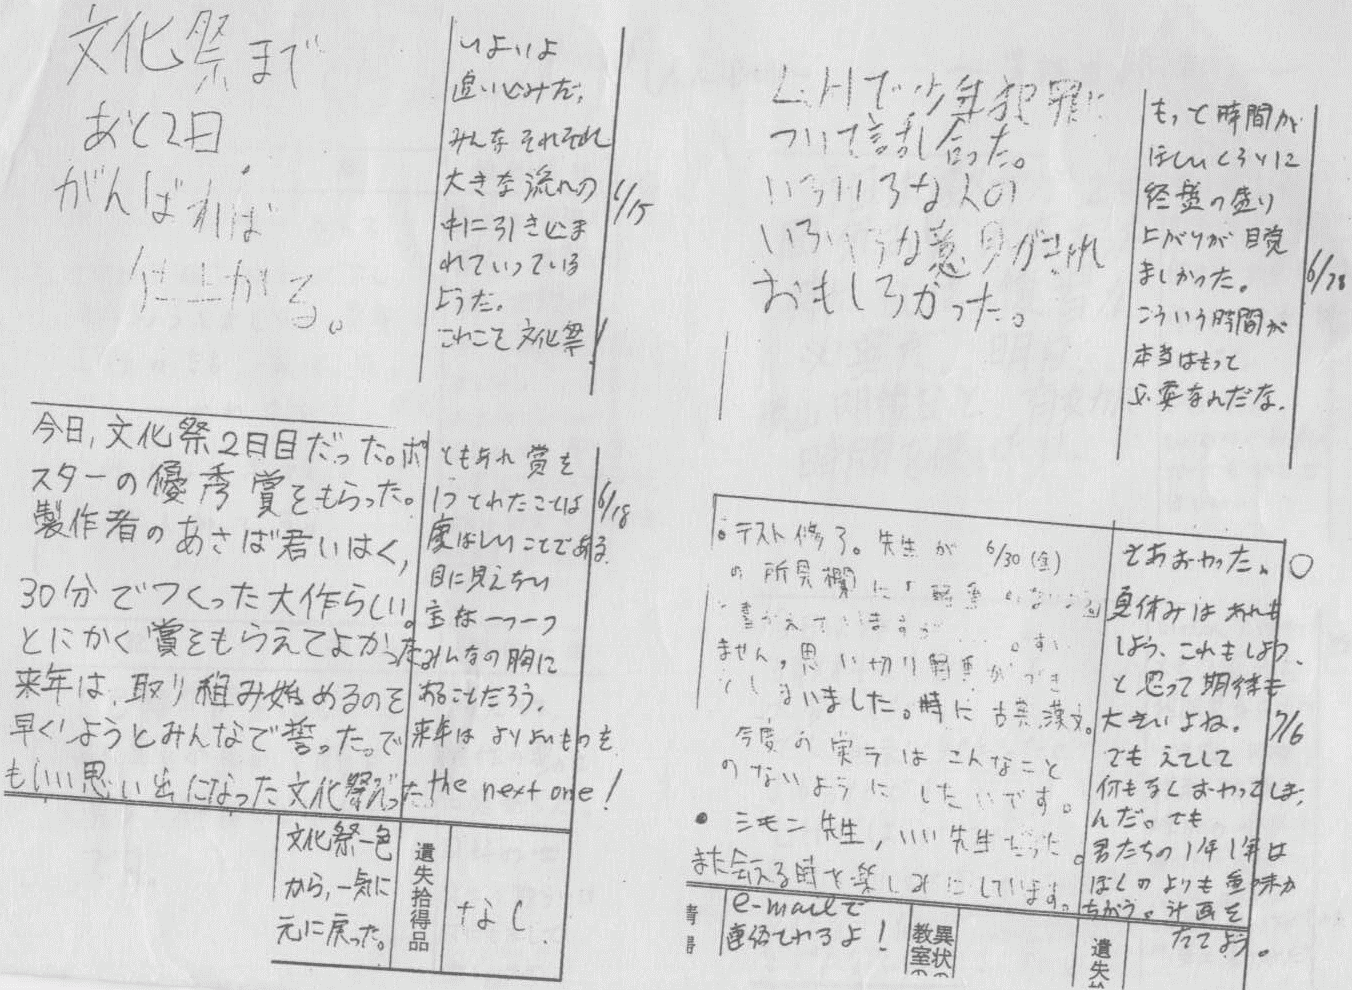 文化祭まで
あと2日.
がんばれば
仕上がる。
いよいよ
追い込みだ,
みんなそれぞれ
大きな流れの
中に引き込ま
れていっている
ようだ.
これこそ文化祭!
6/15
今日,文化祭2日目だった。ポ
スターの優秀賞をもらった。
製作者のあさば君いはく,
30分でつくった大作らしい。
とにかく賞をもらえてよかった
来年は,取り組み始めるのを
早くしようとみんなで誓った。で
もいい思い出になった文化祭だった
ともあれ賞を
とれたことは
喜ばしいことである.
目に見えない
宝は一つ一つ
みんなの胸に
あることだろう.
来年はよりよいものを
the next one!
6/18
文化祭一色
から,一気に
元に戻った。
遺失拾得品
なし.
L.Hで少年犯罪に
ついて話し合った。
いろいろな人の
いろいろな意見がきけれ
おもしろかった。
もっと時間が
ほしいくらいに
終盤の盛り
上がりが目覚
ましかった。
こういう時間が
本当はもっと
必要なんだな.
6/28
・テスト修了。先生が 6/30(金)
の所見欄に「
書かれていますが ……。すい
ません,思い切り
しまいました。特に古典漢文。
今度の実テはこんなこと
のないようにしたいです。
・シモン先生,いい先生だった。
また会える時を楽しみにしています。
さあおわった、
夏休みはあれも
しよう、これもしよう、
と思って期待も
大きいよね.
でもえてして
何もなくおわってしま,
んだ。でも
君たちの1年1年は
ぼくのよりも意味が
ちがう。計画を
たてよう。
7/6
e-mailで
連絡とれるよ!
異状の
教室の
遺失拾